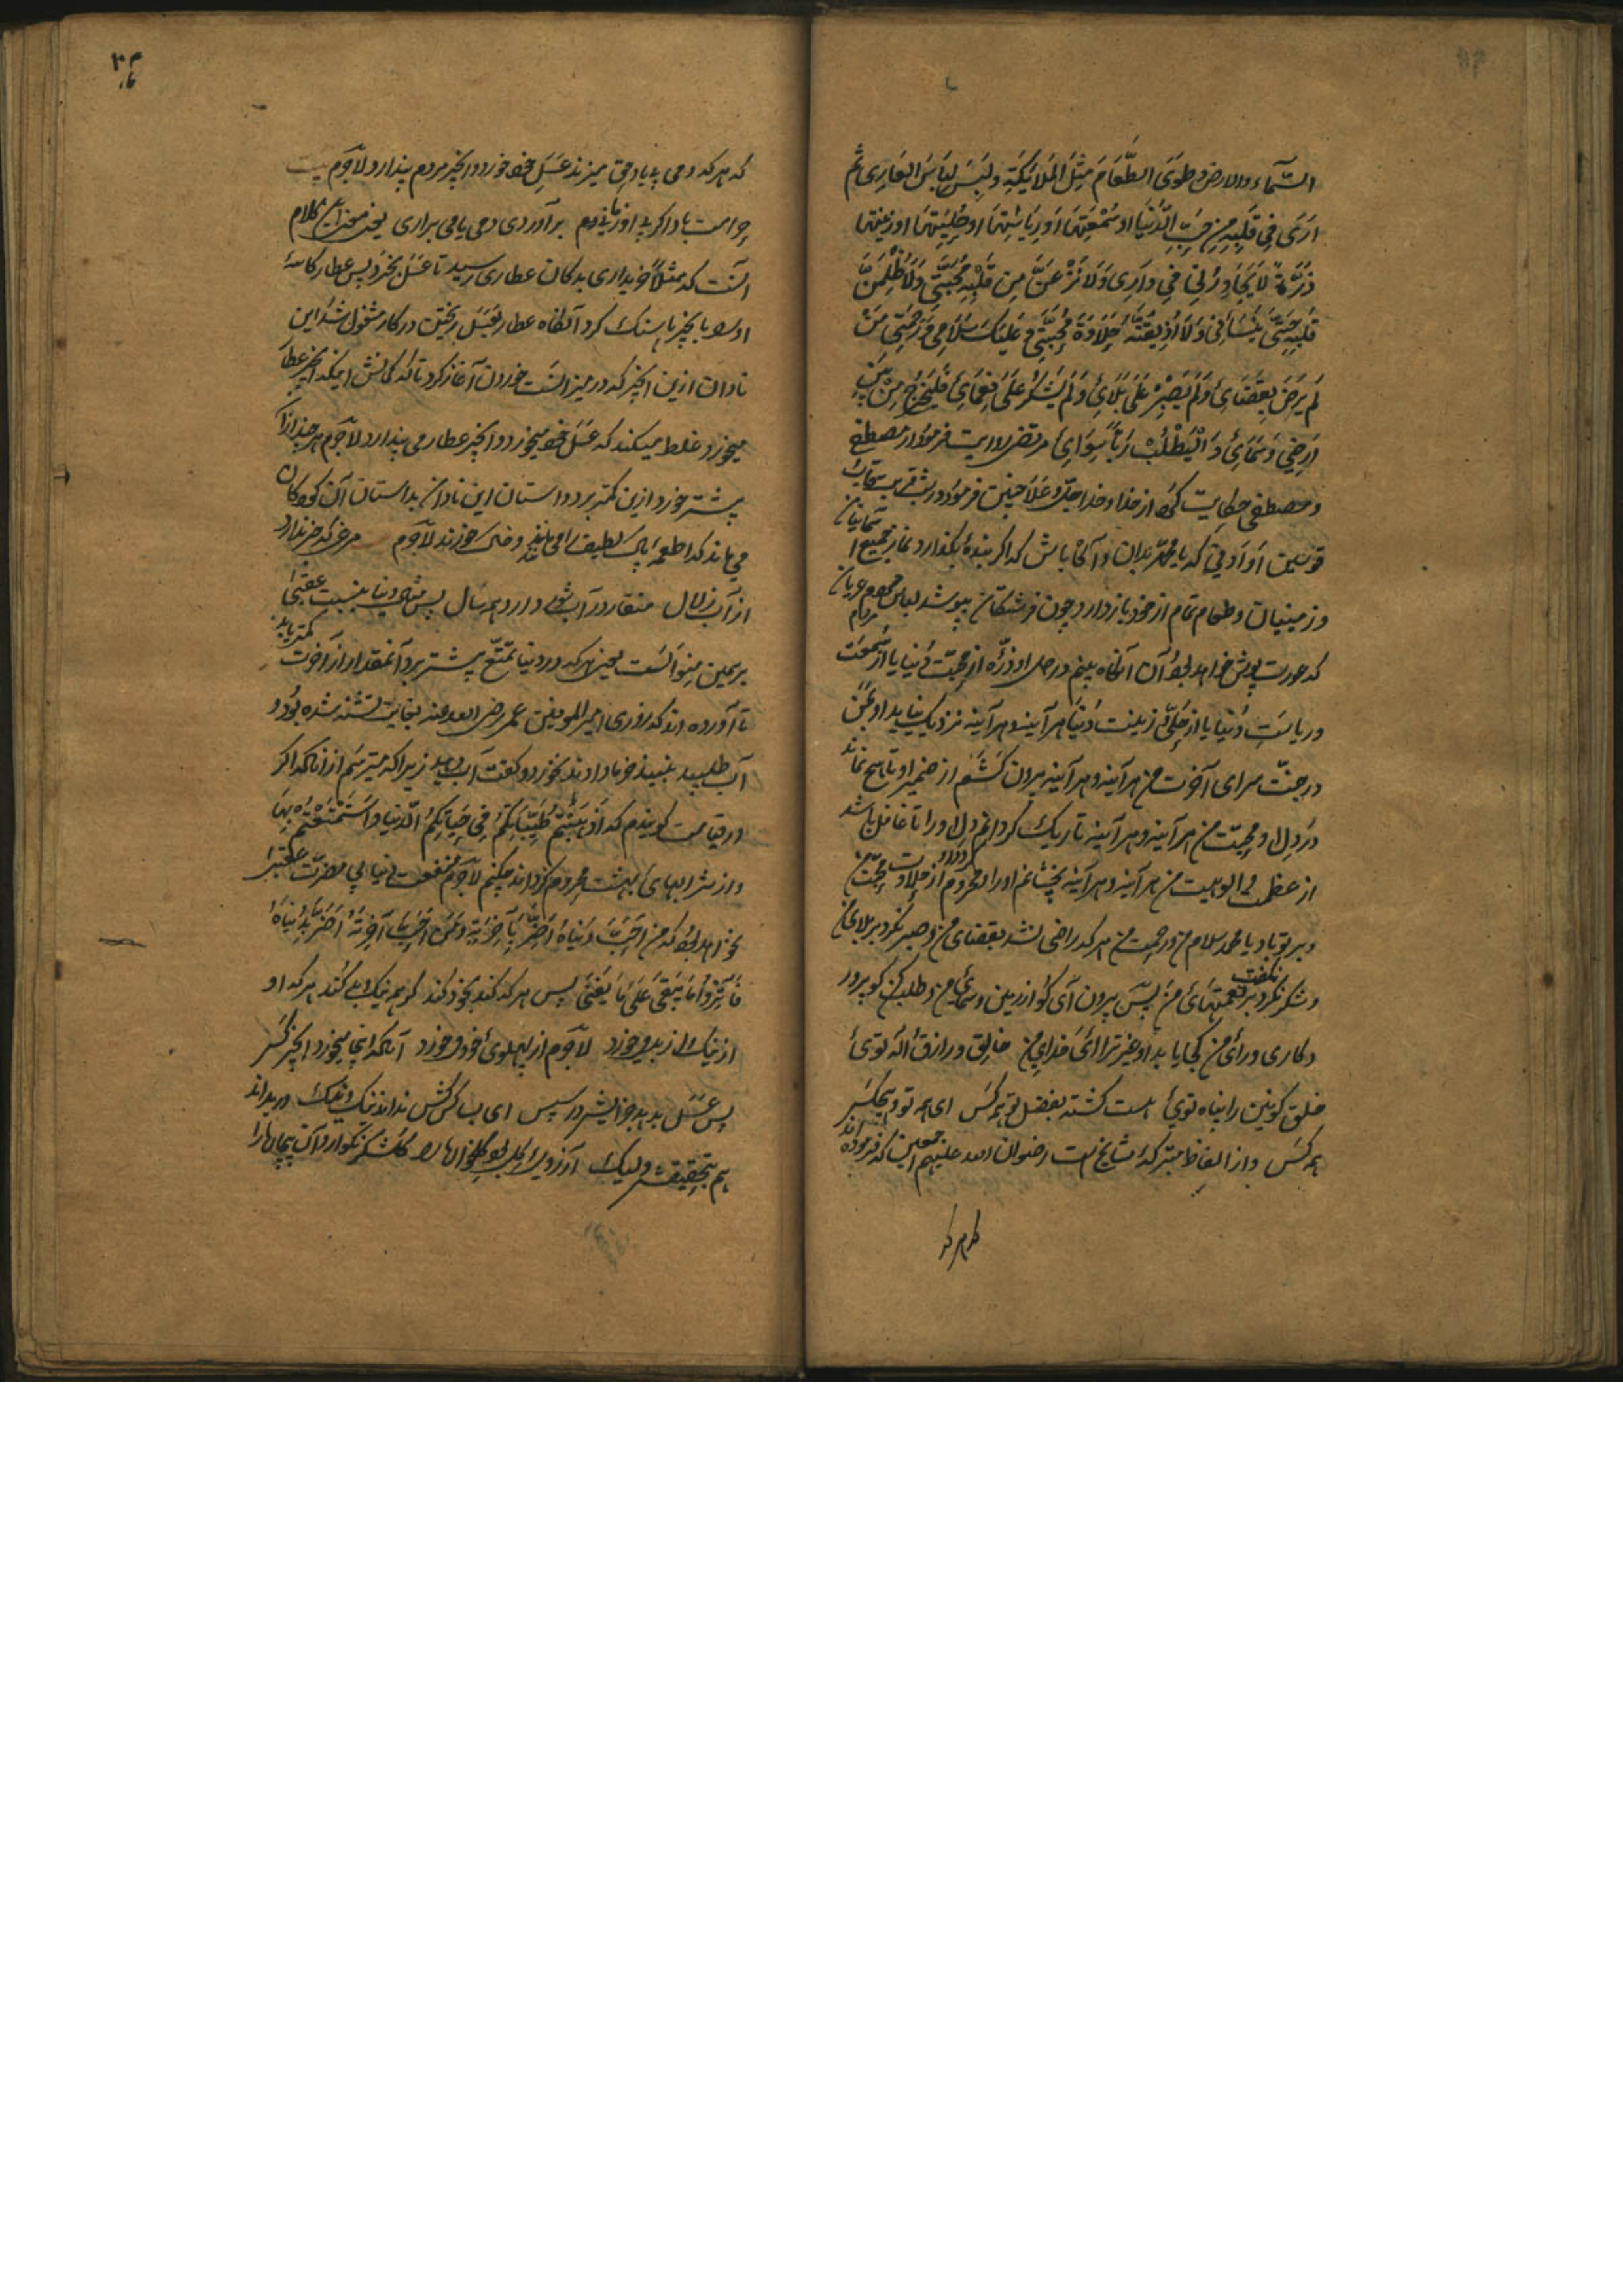 السّماء والارض وطوى الطّعام مثل الملائكة ولبس لباس العاری ثم
اری فی قلبه من حبّ الدّنیا او سمعتها او ریاستها او حلیتها او زینتها
ذرّة لا یجاورنی فی داری ولا نزعنّ من قلبه محبّتی ولا ظلمنّ
قلبه حتّی ینسانی ولا اذیقنّه حلاوة محبّتی وعلیک سلامی ورحمتی من
لم یرض بقضائی ولم یصبر علی بلائی ولم یشکر علی نعمائی فلیخرج من بین
ارضی وسمائی ولیطلب ربّا سوائی مرتضی روایت فرمود از مصطفی
ومصطفی حکایت کرد از خدا وخدا جلّ وعلا چنین فرمود در شب قربت قاب
قوسین او ادنی که یا محمّد بدان وآگاه باش که اگر بندهٔ بگذارد نماز جمیع آسمانیان
وزمینیان وطعام تمام از خود باز دارد چون فرشتگان بپوشد لباس مردم عریان
که عورت پوش خواهد بود آن آنگاه بینم در دل او ذرّه از محبّت دنیا یا از سمعت
وریاست دنیا یا از حلّی وزینت دنیا هر آینه وهر آینه نزدیک نیاید او بمن
در جنّت سرای آخرت من هر آینه وهر آینه بیرون کشم از ضمیر او تا هیچ نماند
در دل او محبّت من هر آینه وهر آینه تاریک گردانم دل او را تا غافل باشد
از عظمت والوهیت من هر آینه وهر آینه بچشانم او را و محروم دارم از حلاوت محبّت من
وبر تو باد یا محمد سلام من ورحمت من هر که راضی نشد بقضای من وصبر نکرد بر بلای من
وشکر نگفت نکرد بر نعمتهای من پس بیرون آی گو از زمین وسمای من وطلب کن گو پرور
دکاری ورای من کجا یابد او غیر ترا ای خدای من خالق ورازق اله توئی
خلق کونین را پناه توئی هست گشته بفضل تو همه کس ای همه تو وهیچکس
همه کس واز الفاظ متبرکهٔ مشایخ است رضوان الله علیهم اجمعین که فرموده اند
که هر که
که هر که دمی بی یاد حق میزند عسل خود خورد وانگبین مردم پندارد لاجرم بیت
حرامت باد اگر بی او زمانی دم برآوردی دمی یا می براری یعنی معنی این کلام
آنست که مثلا خریداری بدکان عطاری رسید تا عسل بخرد پس عطار کاسهٔ
او را با پنج پا سنگ کرد آنگاه عطار بعسل ریختن در کار مشغول شد این
نادان ازین انگبین که در میزانست خوردن آغاز کرد تا که گمانش اینکه انگبین عطار
میخورد غلط میکند که عسل خود میخورد وانگبین عطار می پندارد لاجرم هر چند از آن
بیشتر خورد ازین کمتر برد داستان این نادان بداستان آن کودکان
می ماند که اطعمهٔ پاک لطیف را می مانند وخس خورند لاجرم مرغی که خبر ندارد
از آب زلال منقار در آب شور دارد همه سال پس متاع دنیا بنسبت عقبی
بر همین منوالست یعنی هر که در دنیا تمتّع بیشتر برد آنمقدار از آخرت کمتر یابد
تا آورده اند که روزی امیر المومنین عمر رضی الله عنه بغایت تشنه شده بود و
آب طلبید نبیذ خرما دادند نخورد وگفت آب دهید زیرا که میترسم از آنکه اگر
در قیامت گویندم که اذهبتم طیّباتکم فی حیاتکم الدّنیا واستمتعتم بها
واز شرابهای بهشت محروم گردانند چکنم لاجرم منفعت دنیا بی مضرّت عقبی
نخواهد بود که من احبّ دنیاه اضرّ بآخرته ومن احبّ آخرته اضرّ بدنیاه
فآثروا ما یبقی علی ما یفنی پس هر که کند بخود کند گر همه نیک وبد کند هر که او
از نیک واز بد میخورد لاجرم از پهلوی خود میخورد آنکه اینجا میخورد انگبین کس
پس عسل بدهد جزایش در سپس ای بسا کس کش نداند نیک ونیک در بداند
هم بتحقیقش ولیک آرزوی گل بود گلخوارها را گلشکر نگوارد آن بیچارها را